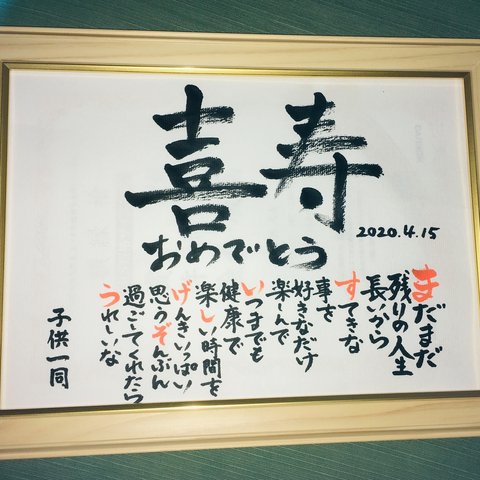 喜寿
おめでとう
2020.4.15
まだまだ
残りの人生
長いから
すてきな
事を
好きなだけ
楽しんで
いつまでも
健康で
楽しい時間を
げんきいっぱい
思うぞんぶん
過ごしてくれたら
うれしいな
子供一同